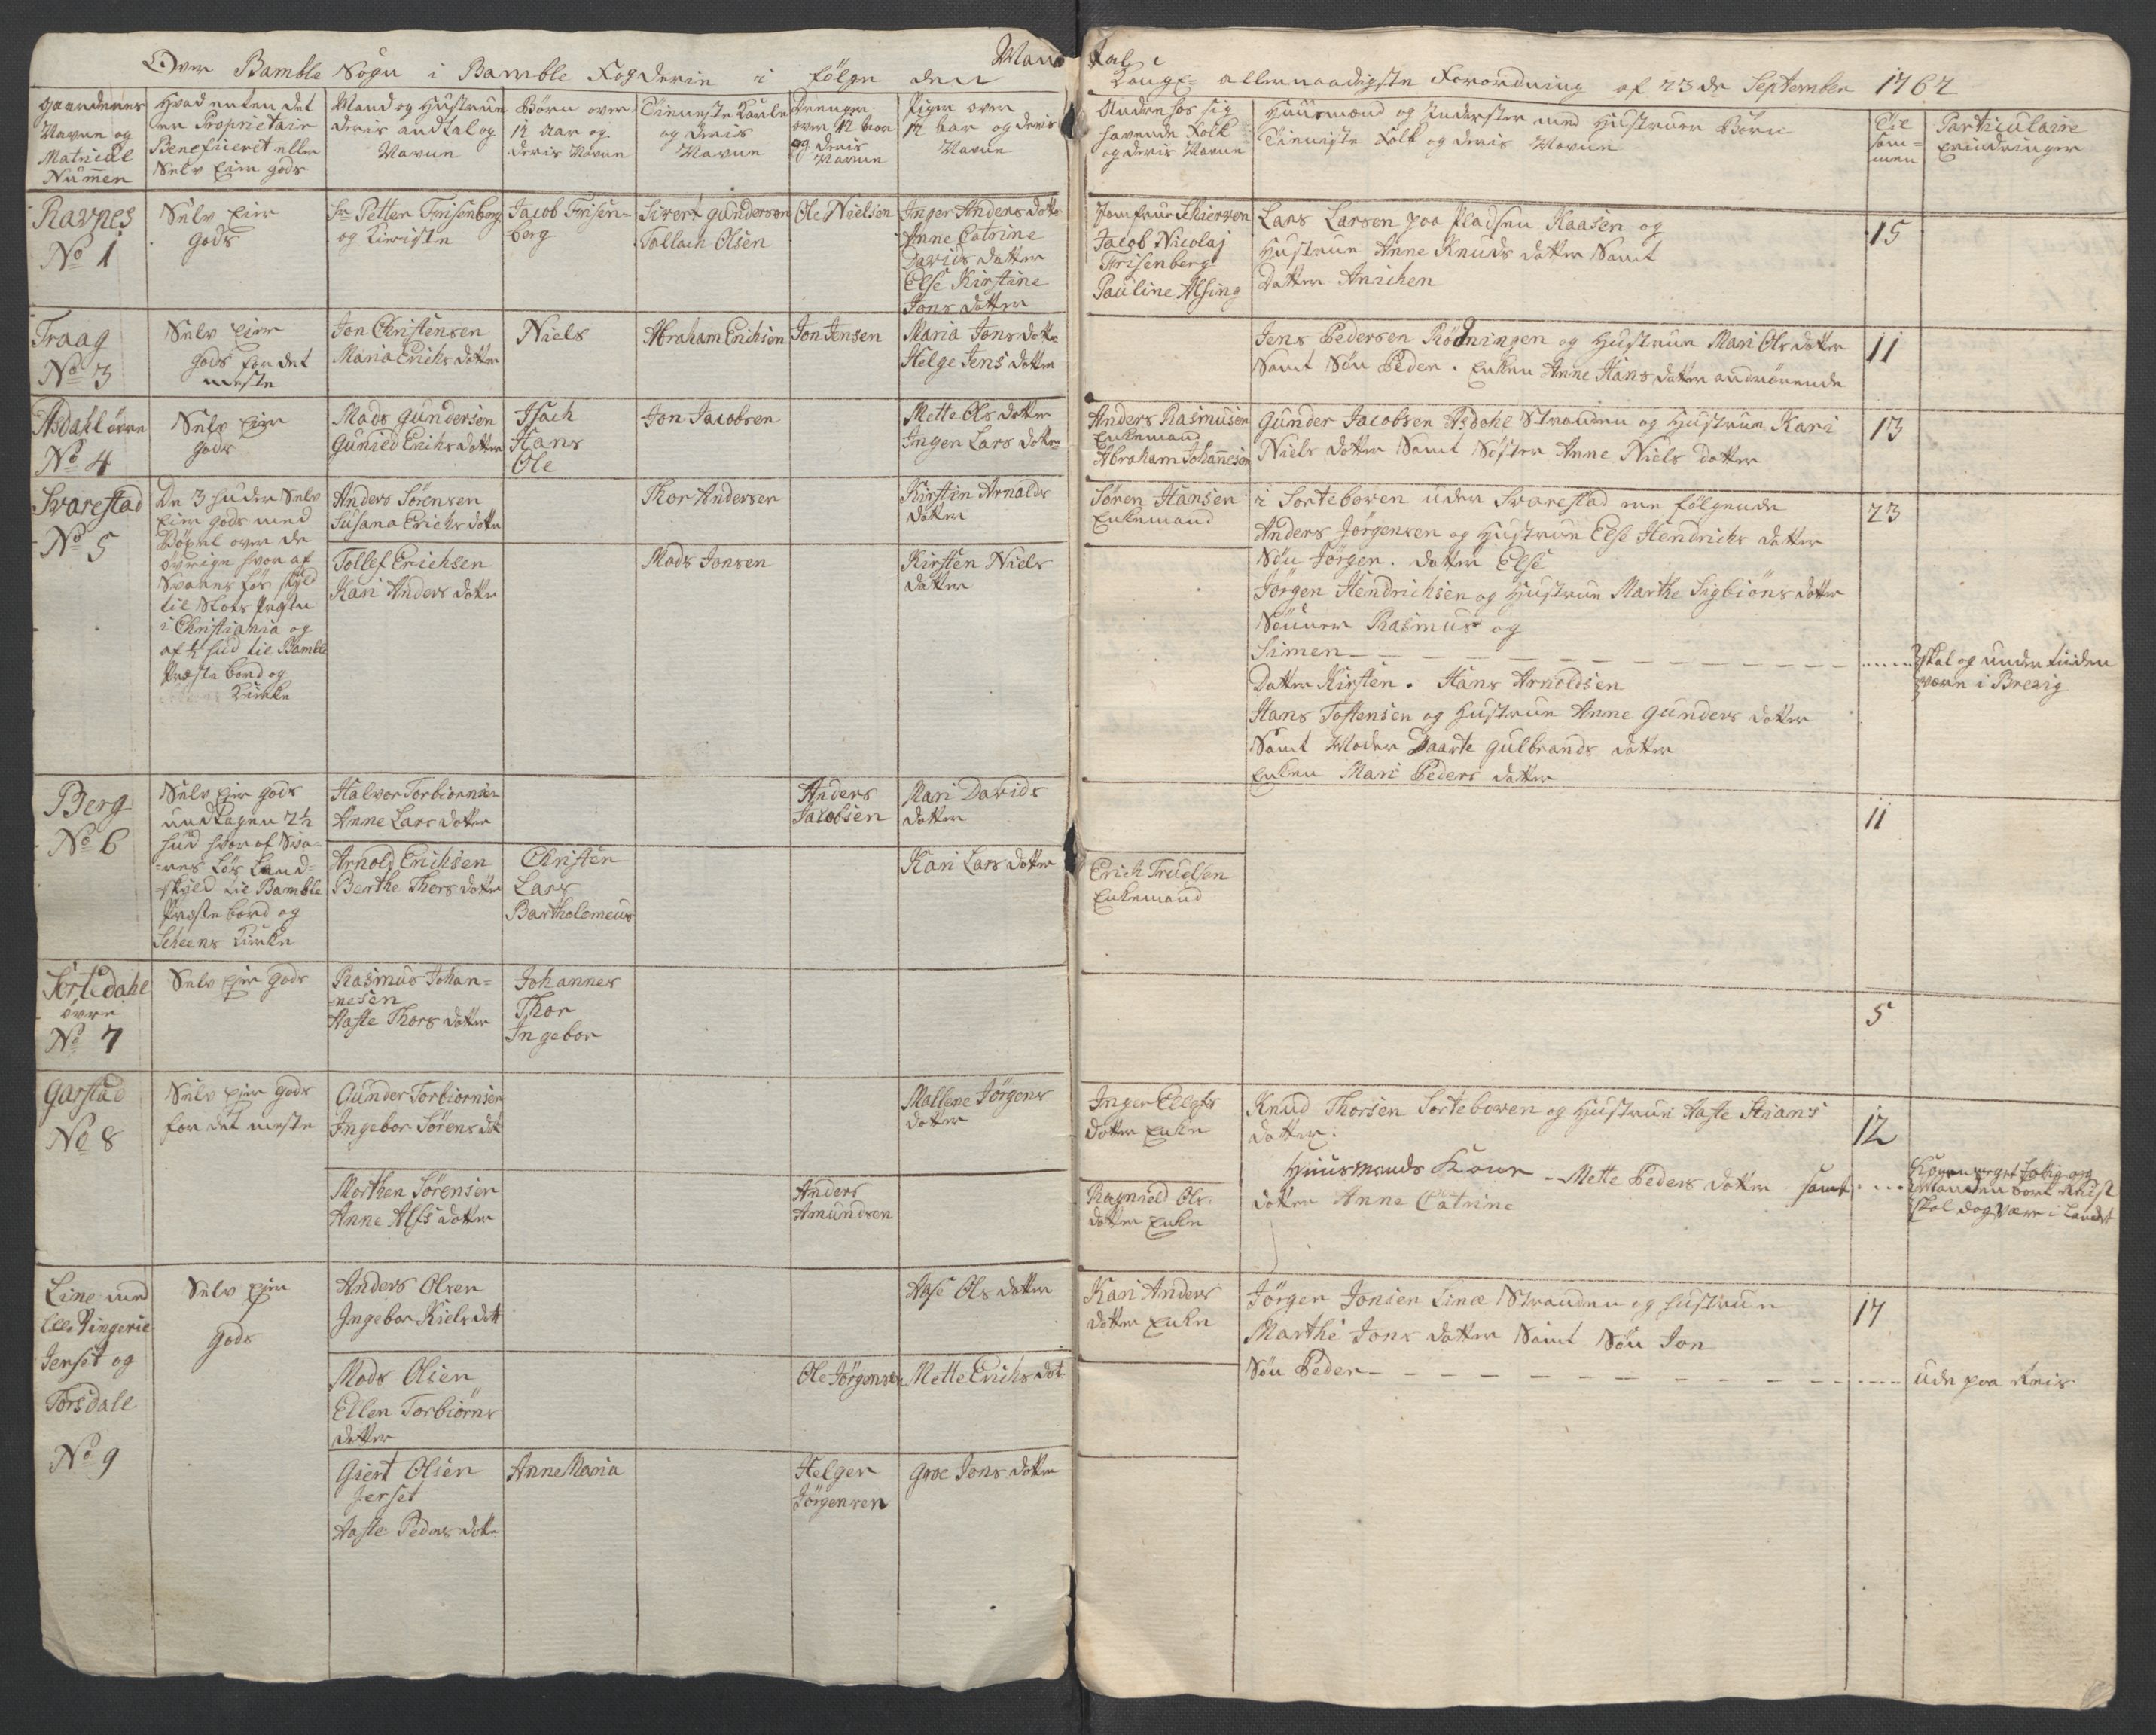 Mandtal
Over Bamble Sogn i Bamble Fogderie i følge den
Kongl: allernaadigste Forordning af 23de September 1762
gaardenes
Navne og
Matricul
Nummer
Hvad enten det
er Proprietair
Beneficeret eller
Selv Eier gods
Mand og Hustrue
deris andtal og
Navne
Børn over
12 Aar og
deris Navne
Tienneste Karle
og deris
Navne
Drenger
over 12 Aar
og deris
Navne
Piger over
12 Aar og deris
Navne
Andre hos sig
havende Folk
og deris Navne
Huusmænd og Inderster med Hustruer Børn
Tieniste Folk og deris Navne
Til
sam-
men
Particulaire
Erindringer
Ravnes
No 1
Selv Eier
gods
Sr Petter Frisenberg
og Kieriste
Jacob Frisen-
berg
Sivert gunderson
Tallach Olsen
Ole Nielsen
Inger Anders datt
Anne Catrine
Davids datter
Else Kirstine
Jons datter
Jomfrue Schierven
Jacob Nicolaj
Frisenberg
Pauline Alsing
Lars Larsen paa Pladsen Kaasen og
Hustrue Anne Knuds datter Samt
Datter Anichen
15
Traag
No 3
Selv Eier
gods for det
meste
Jon Christensen
Maria Erichs datter
Niels
Abraham Erichsen
Jon Jensen
Maria Jons datter
Helge Jens datter
Jens Pedersen Rødningen og Hustrue Mari Ols datter
Samt Søn Peder. Enken Anne Hans datter
11
Asdahl øvre
No 4
Selv Eier
gods
Mads gundersen
Gunild Erichs datter
Isach
Hans
Ole
Jon Jacobsen
Mette Ols datter
Inger Lars datter
Anders Rasmusen
Enkemand
Abraham Johannesen
Gunder Jacobsen Asdahl Stranden og Hustrue Kari
Niels datter Samt Søster Anne Niels datter
13
Svarestad
No 5
De 3 huder Selv
Eier gods med
Bøxel over de
øvrige hvor af
Svares Løs skyld
til Slots Presten
i Christiania og
af ½ hud til Bamble
Preste bord og
Kirke
Anders Sørensen
Susana Erichs datter
Thor Andersen
Kirstin Arnolds
datter
Tollef Erichsen
Kari Anders datter
Mads Jonsen
Kirsten Niels
datter
Søren Hansen
Enkemand
i Sorteboven under Svarestad ere følgende
Anders Jørgensen og Hustrue Else Hendrichs datter
Søn Jørgen. datter Else
Jørgen Hendrichsen og Hustrue Marthe Sigbiøns datter
Sønner Rasmus og
Simen
Datter Kirsten. Hans Arnoldsen
Hans Toftensen og Hustrue Anne gunders datter
Samt Moder Maarte gulbrands datter
Enken Mari Peders datter
23
skal og under tiden
være i Brevig
Berg
No 6
Selv Eier gods
undtagen 2½
hud hvor af Sva-
-res Løs Land-
-skyld til Bamble
Preste bord og
Scheens Kirke
Halvor Torbiornsen
Anne Lars datter
Anders
Jacobsen
Mari Davids
datter
Arnold Erichsen
Berthe Thors datter
Christen
Lars
Bartholemeus
Kari Lars datter
Erich Truelsen
Enkemand
11
Sortedahl
øvre
No 7
Selv Eier gods
Rasmus Johan-
-nesen
Aaste Thors datter
Johannes
Thor
Ingebor
5
Garstad
No 8
Selv Eier gods
for det meste
Gunder Torbiornsen
Ingebor Sørens datt
Mallene Jørgens
datter
Morthen Sørensen
Anne Alfs datter
Anders
Amundsen
Inger Ellefs
datter Enke
Ragnield Ols
datter Enke
Knud Thorsen Sorteboven og Hustrue Aaste Stians
datter.
Huusmands Kone - Mette Peders datter samt
datter Anne Catrine
12
Konen meget fattig og
Manden bort Reist
skal dog være i Landet
Line med
Lille Ringerie
Jerset og
Torsdale
No 9
Selv Eier
gods
Anders Olsen
Ingebor Niels datt
Aase Ols datter
Mads Olsen
Ellen Torbiørns
datter
Ole Jørgensen
Mette Erichs dat
Giert Olsen
Jerset
Aaste Peders datt
Anne Maria
Helger
Jørgensen
groe Jons datter
Kari Anders
datter Enke
Jørgen Jonsen Line Stranden og hustrue
Marthe Jons datter Samt Søn Jon
Søn Peder
17
ude paa Reis